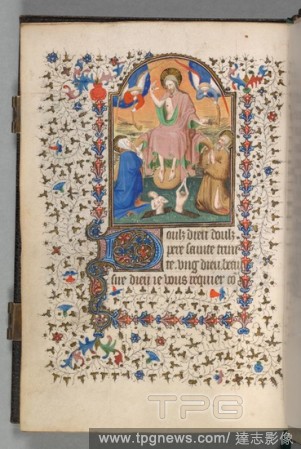 Doulz dieu doulz
pere sainte trini
te. vng dieu. beau
sire dieu ie vous requier co
TPG
www.tpgnews.com/ 達志影像